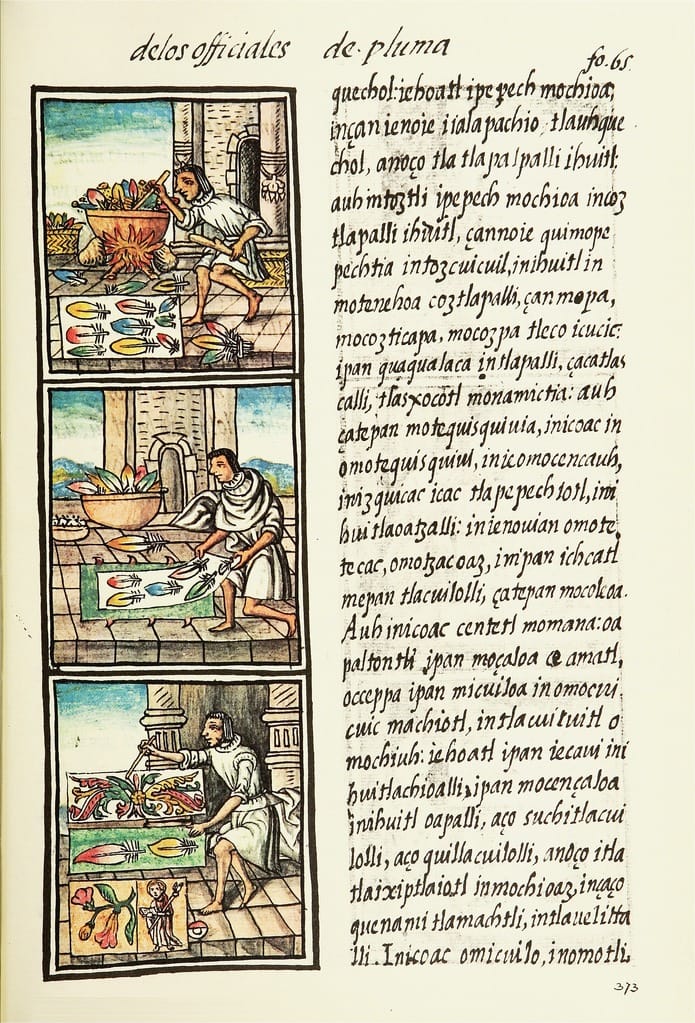 delos officiales de pluma
fo. 65
quechol: iehoatl ipepech mochioa,
inçan ienoie iialapachio, tlauhque
chol, anoço tla tlapalpalli ihuitl:
auh in toztli ipepech mochioa incoz
tlapalli ihuitl, çannoie quimope
pechtia intozcuicuil, inihuitl in
motenehoa coztlapalli, çan mopa,
mocozticapa, mocozpa tleco icucic:
ipan quaqualaca in tlapalli, çacatlas
calli, tlasxocotl monamictia: auh
çatepan motequisquiuia, inicoac in
omotequisquiui, inicomocencauh,
inizquicac icac tlapepechiotl, ini
huitlaoatzalli: inienouian omote,
tecac, omotzacoaz, inipan ichcatl
mepan tlacuilolli, çatepan mocoloa.
Auh inicoac centetl momana: oa
paltontli ipan moçaloa amatl,
occeppa ipan micuiloa inomocui
cuic machiotl, intlacuicuitl o
mochiuh: iehoatl ipan iecaui ini
huitlachioalli, ipan mocencaloa
inihuitl oapalli, aço suchitlacui
lolli, aço quillacuilolli, anoço itla
tlaixiptlaiotl inmochioaz, inçaço
quenami tlamachtli, intlauelitta
lli. Inicoac omicuilo, inomotli,
373